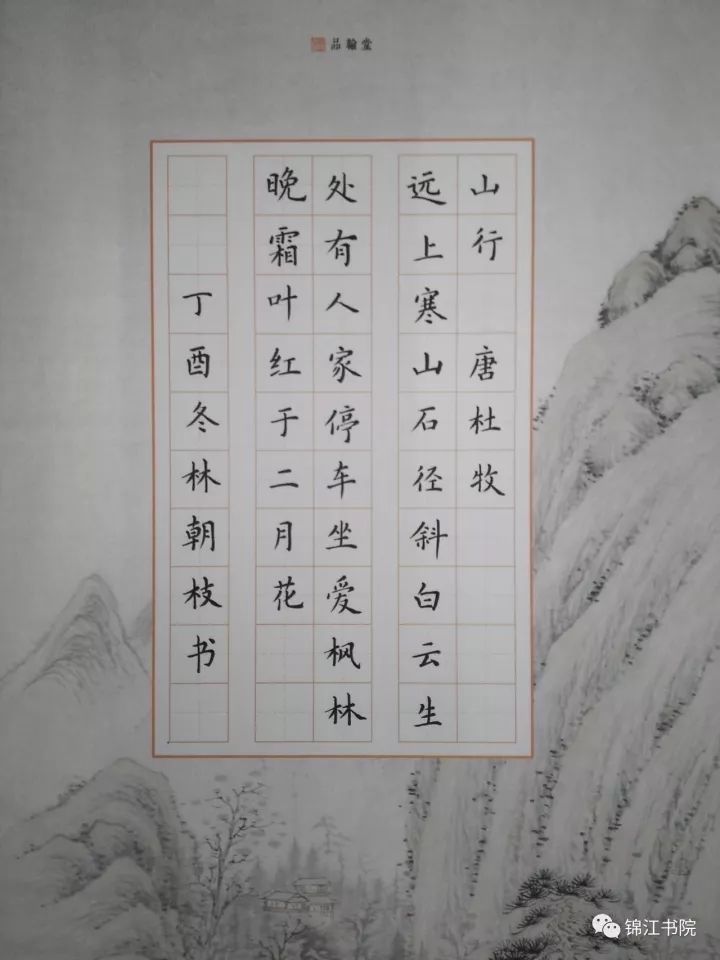 品翰堂
山行 唐杜牧
远上寒山石径斜白云生
处有人家停车坐爱枫林
晚霜叶红于二月花
丁酉冬林朝枝书
锦江书院